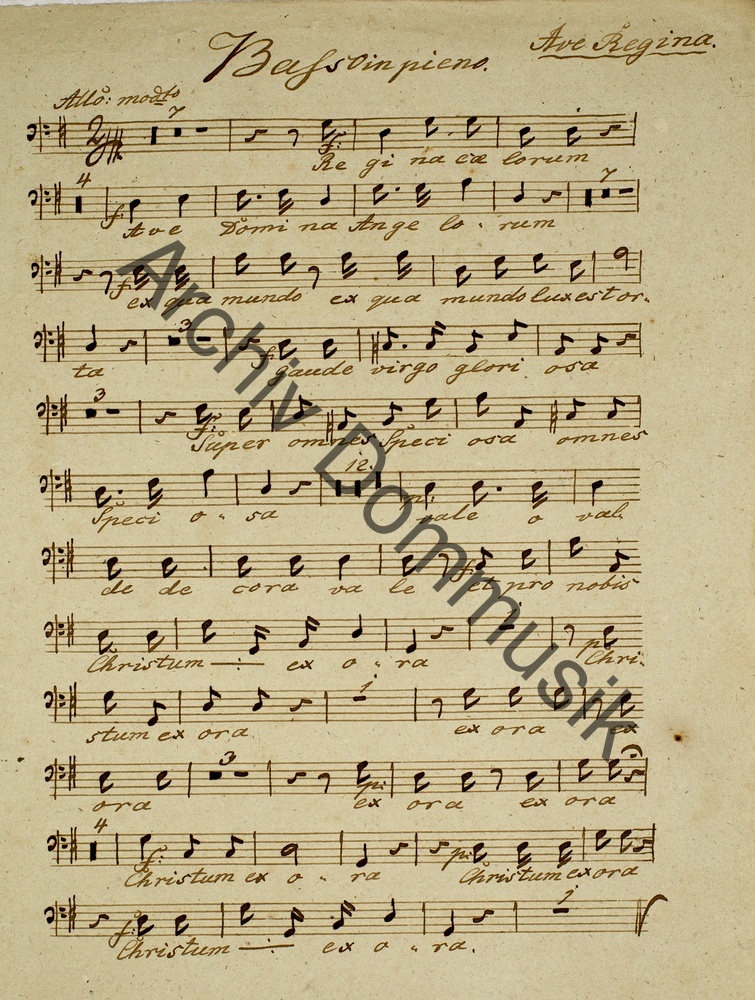 Basso in pieno.
Ave Regina.
Allo: modto
7
f:
Re gi na cæ lorum
4
7
f
Ave Domi na Ange lo - rum
f
ex qua mundo ex qua mundo lux est or-
3
f
ta gaude virgo glori osa
3
f:
Super omnes Speci osa omnes
12.
p:
Speci o - sa vale o val
f
de de cora va le et pro nobis
1
p:
Christum ex o - ra Chri-
1
stum ex ora ex ora ex
3
p:
ora ex ora ex ora
4
f:
p:
Christum ex o - ra Christum ex ora
1
f:
Christum ex o - ra.
Archiv Dommusik